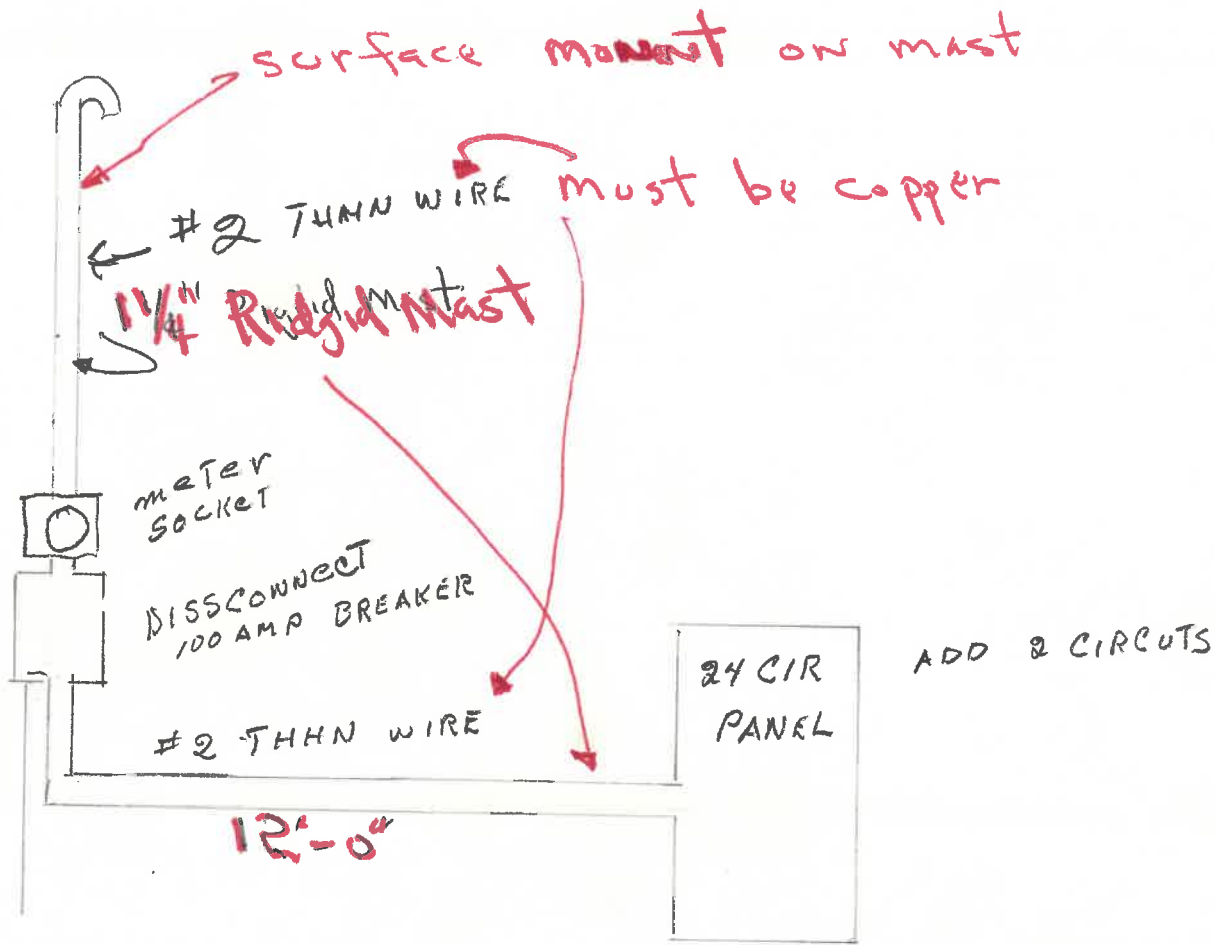 surface mount on mast
#2 THHN WIRE
must be copper
1 1/4" Ridgid Mast
meter
socket
DISSCONNECT
100 AMP BREAKER
#2 THHN WIRE
12'-0"
24 CIR
PANEL
ADD 2 CIRCUTS